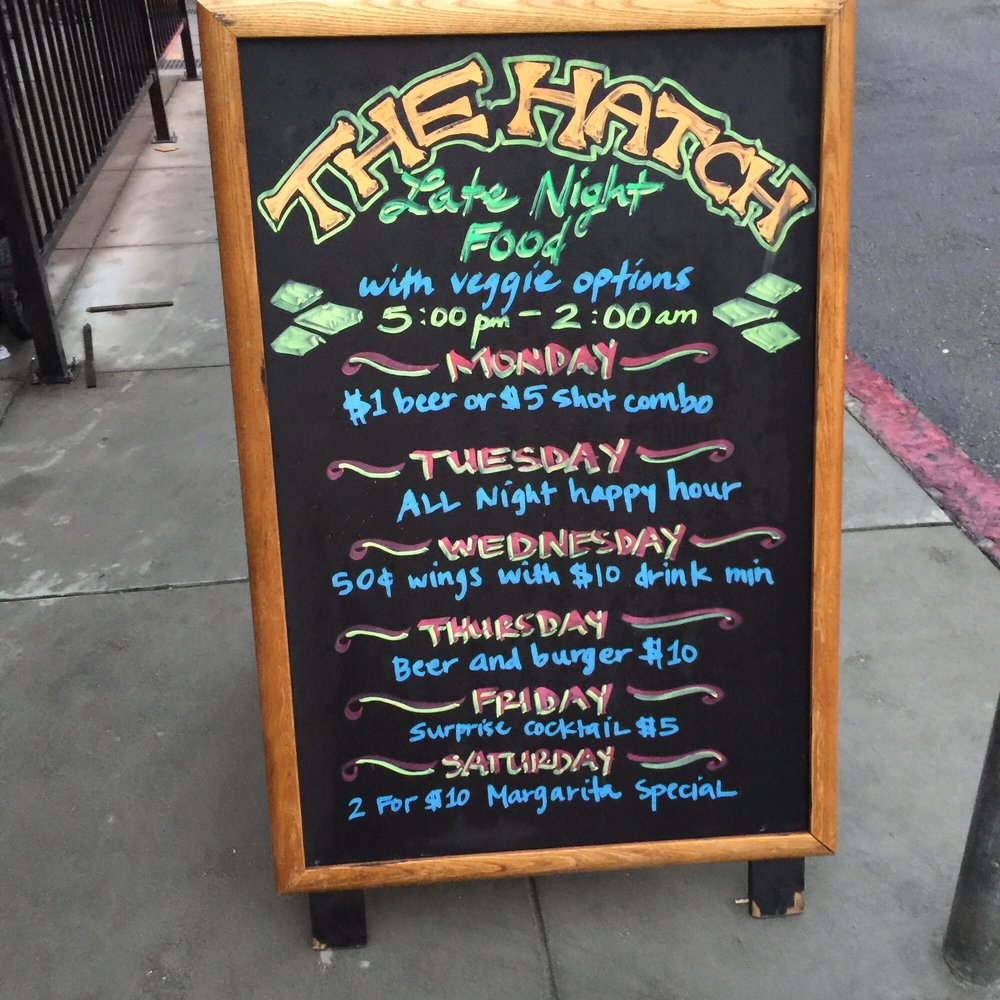 THE HATCH
Late Night
Food
with veggie options
5:00 pm - 2:00 am
MONDAY
$1 beer or $5 shot combo
TUESDAY
ALL Night happy hour
WEDNESDAY
50¢ wings with $10 drink min
THURSDAY
Beer and burger $10
FRIDAY
Surprise cocktail $5
SATURDAY
2 For $10 Margarita Special